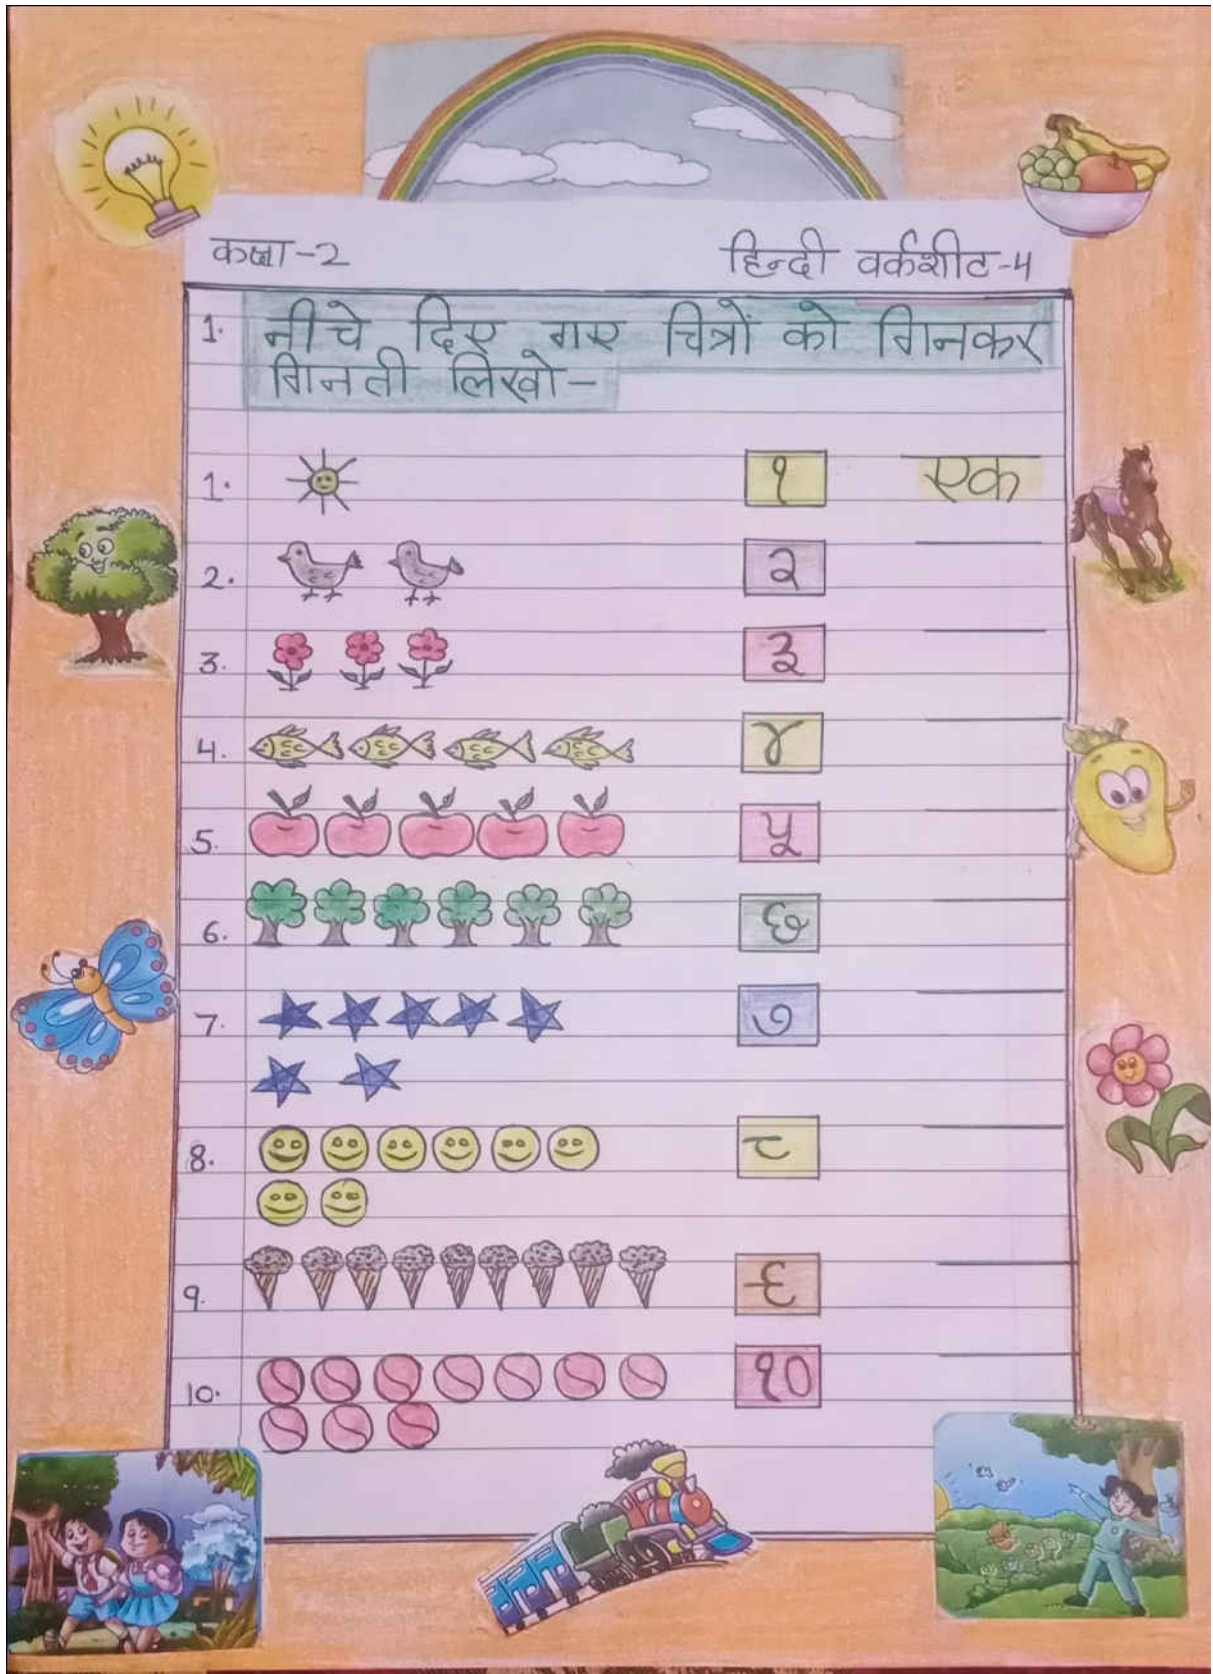 कक्षा-2 हिन्दी वर्कशीट-4
1. नीचे दिए गए चित्रों को गिनकर
गिनती लिखो-
1. १ एक
2. २
3. ३
4. ४
5. ५
6. ६
7. ७
8. ८
9. ९
10. १०